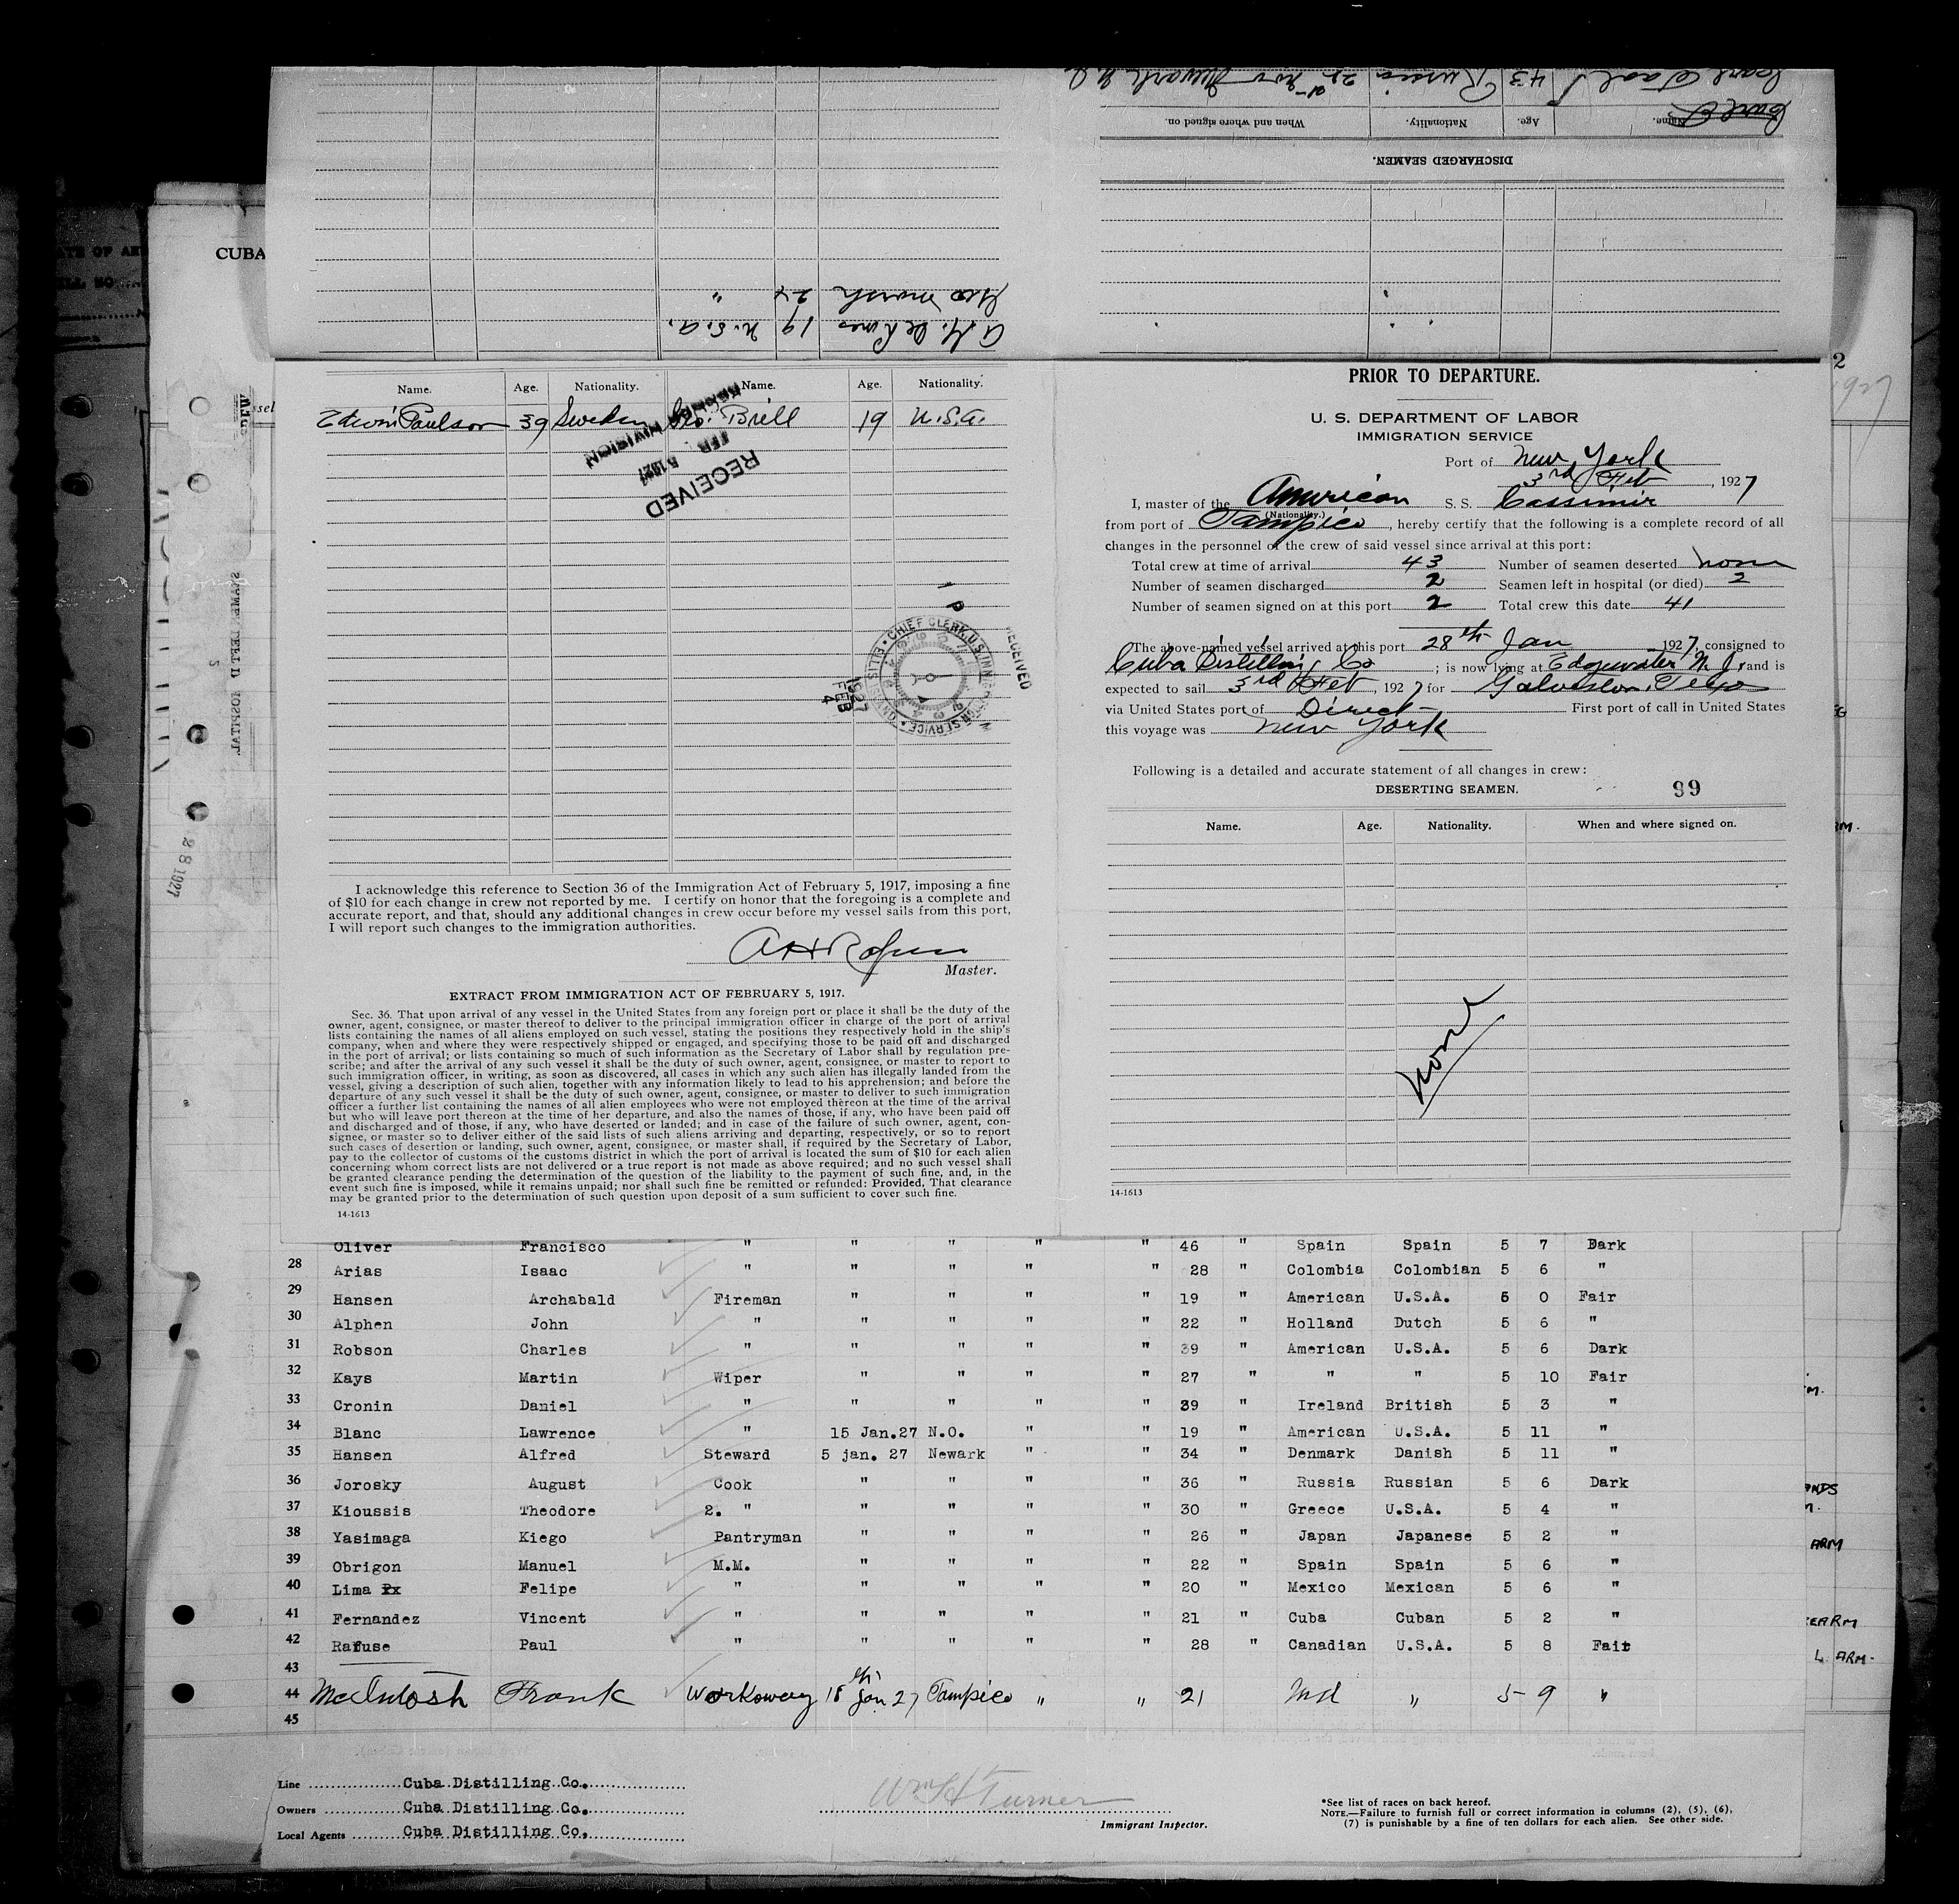 Carl Saal 43 Russia 21st Nov Newark N.J.
Name. Age. Nationality. When and where signed on.
DISCHARGED SEAMEN.
Geo Marsh 24 "
19 U.S.A.
CUBA
Name. Age. Nationality. Name. Age. Nationality.
Edwin Paulson 39 Sweden Geo. Brill 19 U.S.A.
RECEIVED
FEB 5 1927
DIVISION
CHIEF CLERK, U.S. IMMIGRATION SERVICE
ELLIS
1927
FEB
4
RECEIVED
I acknowledge this reference to Section 36 of the Immigration Act of February 5, 1917, imposing a fine
of $10 for each change in crew not reported by me. I certify on honor that the foregoing is a complete and
accurate report, and that, should any additional changes in crew occur before my vessel sails from this port,
I will report such changes to the immigration authorities.
Master.
EXTRACT FROM IMMIGRATION ACT OF FEBRUARY 5, 1917.
Sec. 36. That upon arrival of any vessel in the United States from any foreign port or place it shall be the duty of the
owner, agent, consignee, or master thereof to deliver to the principal immigration officer in charge of the port of arrival
lists containing the names of all aliens employed on such vessel, stating the positions they respectively hold in the ship's
company, when and where they were respectively shipped or engaged, and specifying those to be paid off and discharged
in the port of arrival; or lists containing so much of such information as the Secretary of Labor shall by regulation pre-
scribe; and after the arrival of any such vessel it shall be the duty of such owner, agent, consignee, or master to report to
such immigration officer, in writing, as soon as discovered, all cases in which any such alien has illegally landed from the
vessel, giving a description of such alien, together with any information likely to lead to his apprehension; and before the
departure of any such vessel it shall be the duty of such owner, agent, consignee, or master to deliver to such immigration
officer a further list containing the names of all alien employees who were not employed thereon at the time of the arrival
but who will leave port thereon at the time of her departure, and also the names of those, if any, who have been paid off
and discharged and of those, if any, who have deserted or landed; and in case of the failure of such owner, agent, con-
signee, or master so to deliver either of the said lists of such aliens arriving and departing, respectively, or so to report
such cases of desertion or landing, such owner, agent, consignee, or master shall, if required by the Secretary of Labor,
pay to the collector of customs of the customs district in which the port of arrival is located the sum of $10 for each alien
concerning whom correct lists are not delivered or a true report is not made as above required; and no such vessel shall
be granted clearance pending the determination of the question of the liability to the payment of such fine, and, in the
event such fine is imposed, while it remains unpaid; nor shall such fine be remitted or refunded: Provided, That clearance
may be granted prior to the determination of such question upon deposit of a sum sufficient to cover such fine.
14-1613
PRIOR TO DEPARTURE.
U. S. DEPARTMENT OF LABOR
IMMIGRATION SERVICE
Port of New York
3rd Feb, 1927
I, master of the American S. S. Cassimir
(Nationality.)
from port of Tampico, hereby certify that the following is a complete record of all
changes in the personnel of the crew of said vessel since arrival at this port:
Total crew at time of arrival 43 Number of seamen deserted none
Number of seamen discharged 2 Seamen left in hospital (or died) 2
Number of seamen signed on at this port 2 Total crew this date 41
The above-named vessel arrived at this port 28th Jan 1927, consigned to
Cuba Distilling Co; is now lying at Edgewater N.J. and is
expected to sail 3rd Feb, 1927 for Galveston, Texas
via United States port of Direct First port of call in United States
this voyage was New York
Following is a detailed and accurate statement of all changes in crew:
DESERTING SEAMEN. 99
Name. Age. Nationality. When and where signed on.
none
14-1613
Oliver Francisco " " " " " 46 " Spain Spain 5 7 Dark
28 Arias Isaac " " " " " 28 " Colombia Colombian 5 6 "
29 Hansen Archabald Fireman " " " " 19 " American U.S.A. 6 0 Fair
30 Alphen John " " " " " 22 " Holland Dutch 5 6 "
31 Robson Charles " " " " " 39 " American U.S.A. 5 6 Dark
32 Kays Martin Wiper " " " " 27 " " " 5 10 Fair
33 Cronin Daniel " " " " " 39 " Ireland British 5 3 "
34 Blanc Lawrence " 15 Jan.27 N.O. " " 19 " American U.S.A. 5 11 "
35 Hansen Alfred Steward 5 jan. 27 Newark " " 34 " Denmark Danish 5 11 "
36 Jorosky August Cook " " " " 36 " Russia Russian 5 6 Dark
37 Kioussis Theodore 2. " " " " " 30 " Greece U.S.A. 5 4 "
38 Yasimaga Kiego Pantryman " " " " 26 " Japan Japanese 5 2 "
39 Obrigon Manuel M.M. " " " " 22 " Spain Spain 5 6 "
40 Lima Felipe " " " " " 20 " Mexico Mexican 5 6 "
41 Fernandez Vincent " " " " " 21 " Cuba Cuban 5 2 "
42 Rafuse Paul " " " " " 28 " Canadian U.S.A. 5 8 Fair
43
44 McIntosh Frank Workaway 18th Jan 27 Tampico " " 21 Md " 5 9 "
45
Line Cuba Distilling Co.
Owners Cuba Distilling Co.
Local Agents Cuba Distilling Co.
Wm H Turner
Immigrant Inspector.
*See list of races on back hereof.
NOTE.—Failure to furnish full or correct information in columns (2), (5), (6),
(7) is punishable by a fine of ten dollars for each alien. See other side.